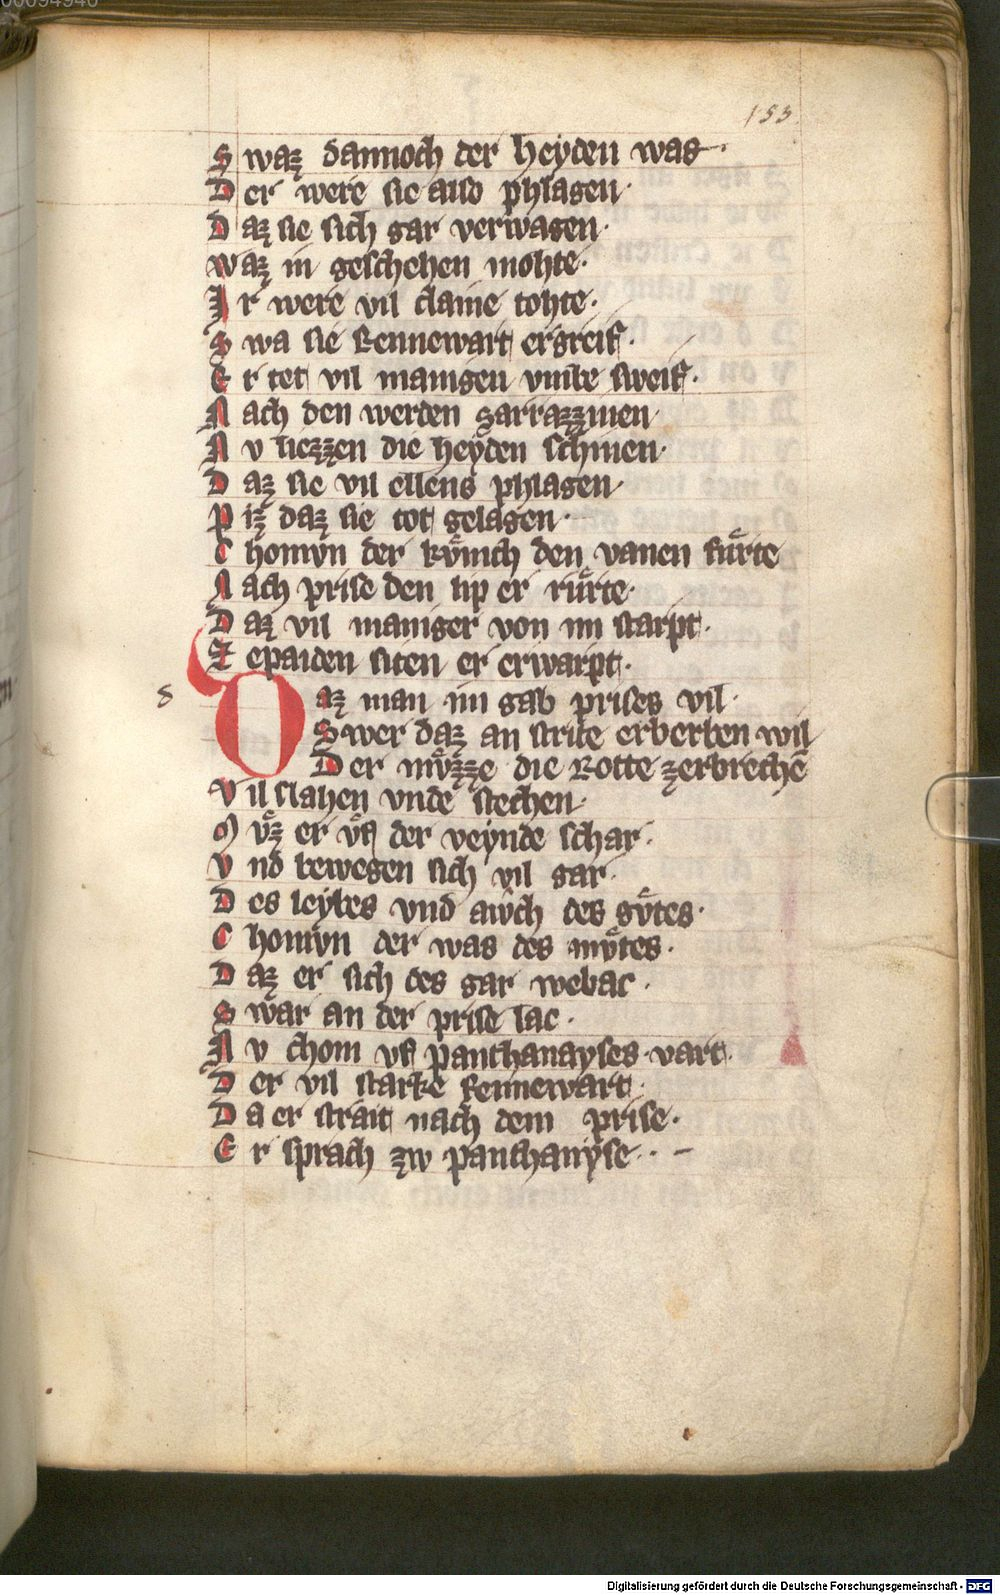 00094940
153
Swaz dannoch der heyden was·
Der were sie also phlagen·
Daz sie sich gar verwagen·
Waz in geschehen mohte·
Ir were vil claine tohte·
Swa sie Rennewart ergreif·
Er tet vil manigen vmbe sweif·
Nach den werden sarrazzinen
Nv liezzen die heyden schinen·
Daz sie vil ellens phlagen·
Piz daz sie tot gelagen·
Chomyn der kuͤnich den vanen fuͤrte
Nach prise den lip er ruͤrte·
Daz vil maniger von im starpt·
Ze paiden siten er erwarpt·
d
Daz man im gab prises vil·
Swer daz an strite erberben wil
Der muͤzze die Rotte zerbrechē
Vil slahen vnde stechen·
Muͤz er vf der veynde schar·
Vnd bewegen sich vil gar·
Des leybes vnd awch des gůtes·
Chomyn der was des můtes·
Daz er sich des gar webac·
Swar an der prise lac·
Nv chom vf panthanayses vart·
Der vil starke Rennewart·
Da er strait nach dem prise·
Er sprach zw panthanyse··–
Digitalisierung gefördert durch die Deutsche Forschungsgemeinschaft - DFG